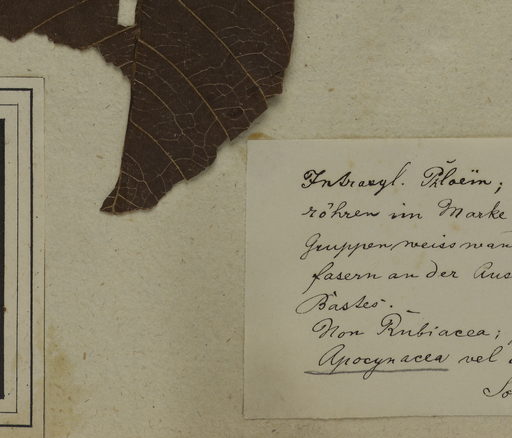 Intraxyl. Phloëm;
röhren im Marke
Gruppen weisswan
fasern an der Aus
Bastes.
Non Rubiacea;
Apocynacea vel
So